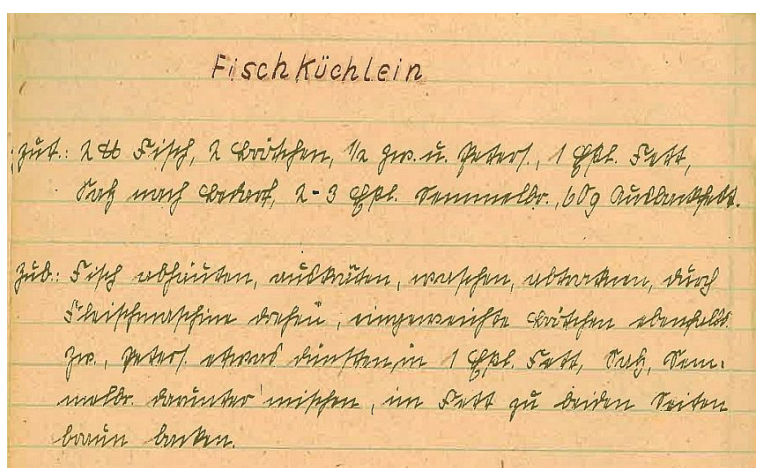 Fischküchlein
Zut.: 2 ℔ Fisch, 2 Brötchen, ½ Zw. u. Peters., 1 Eßl. Fett,
Salz nach Bedarf, 2-3 Eßl. Semmelbr., 60g Ausbackfett.
Zub.: Fisch abhäuten, ausgräten, waschen, abtrocknen, durch
Fleischmaschine drehen, eingeweichte Brötchen ebenfalls.
Zw., Peters. etwas dünsten, in 1 Eßl. Fett, Salz, Sem-
melbr. darunter mischen, im Fett zu beiden Seiten
braun backen.